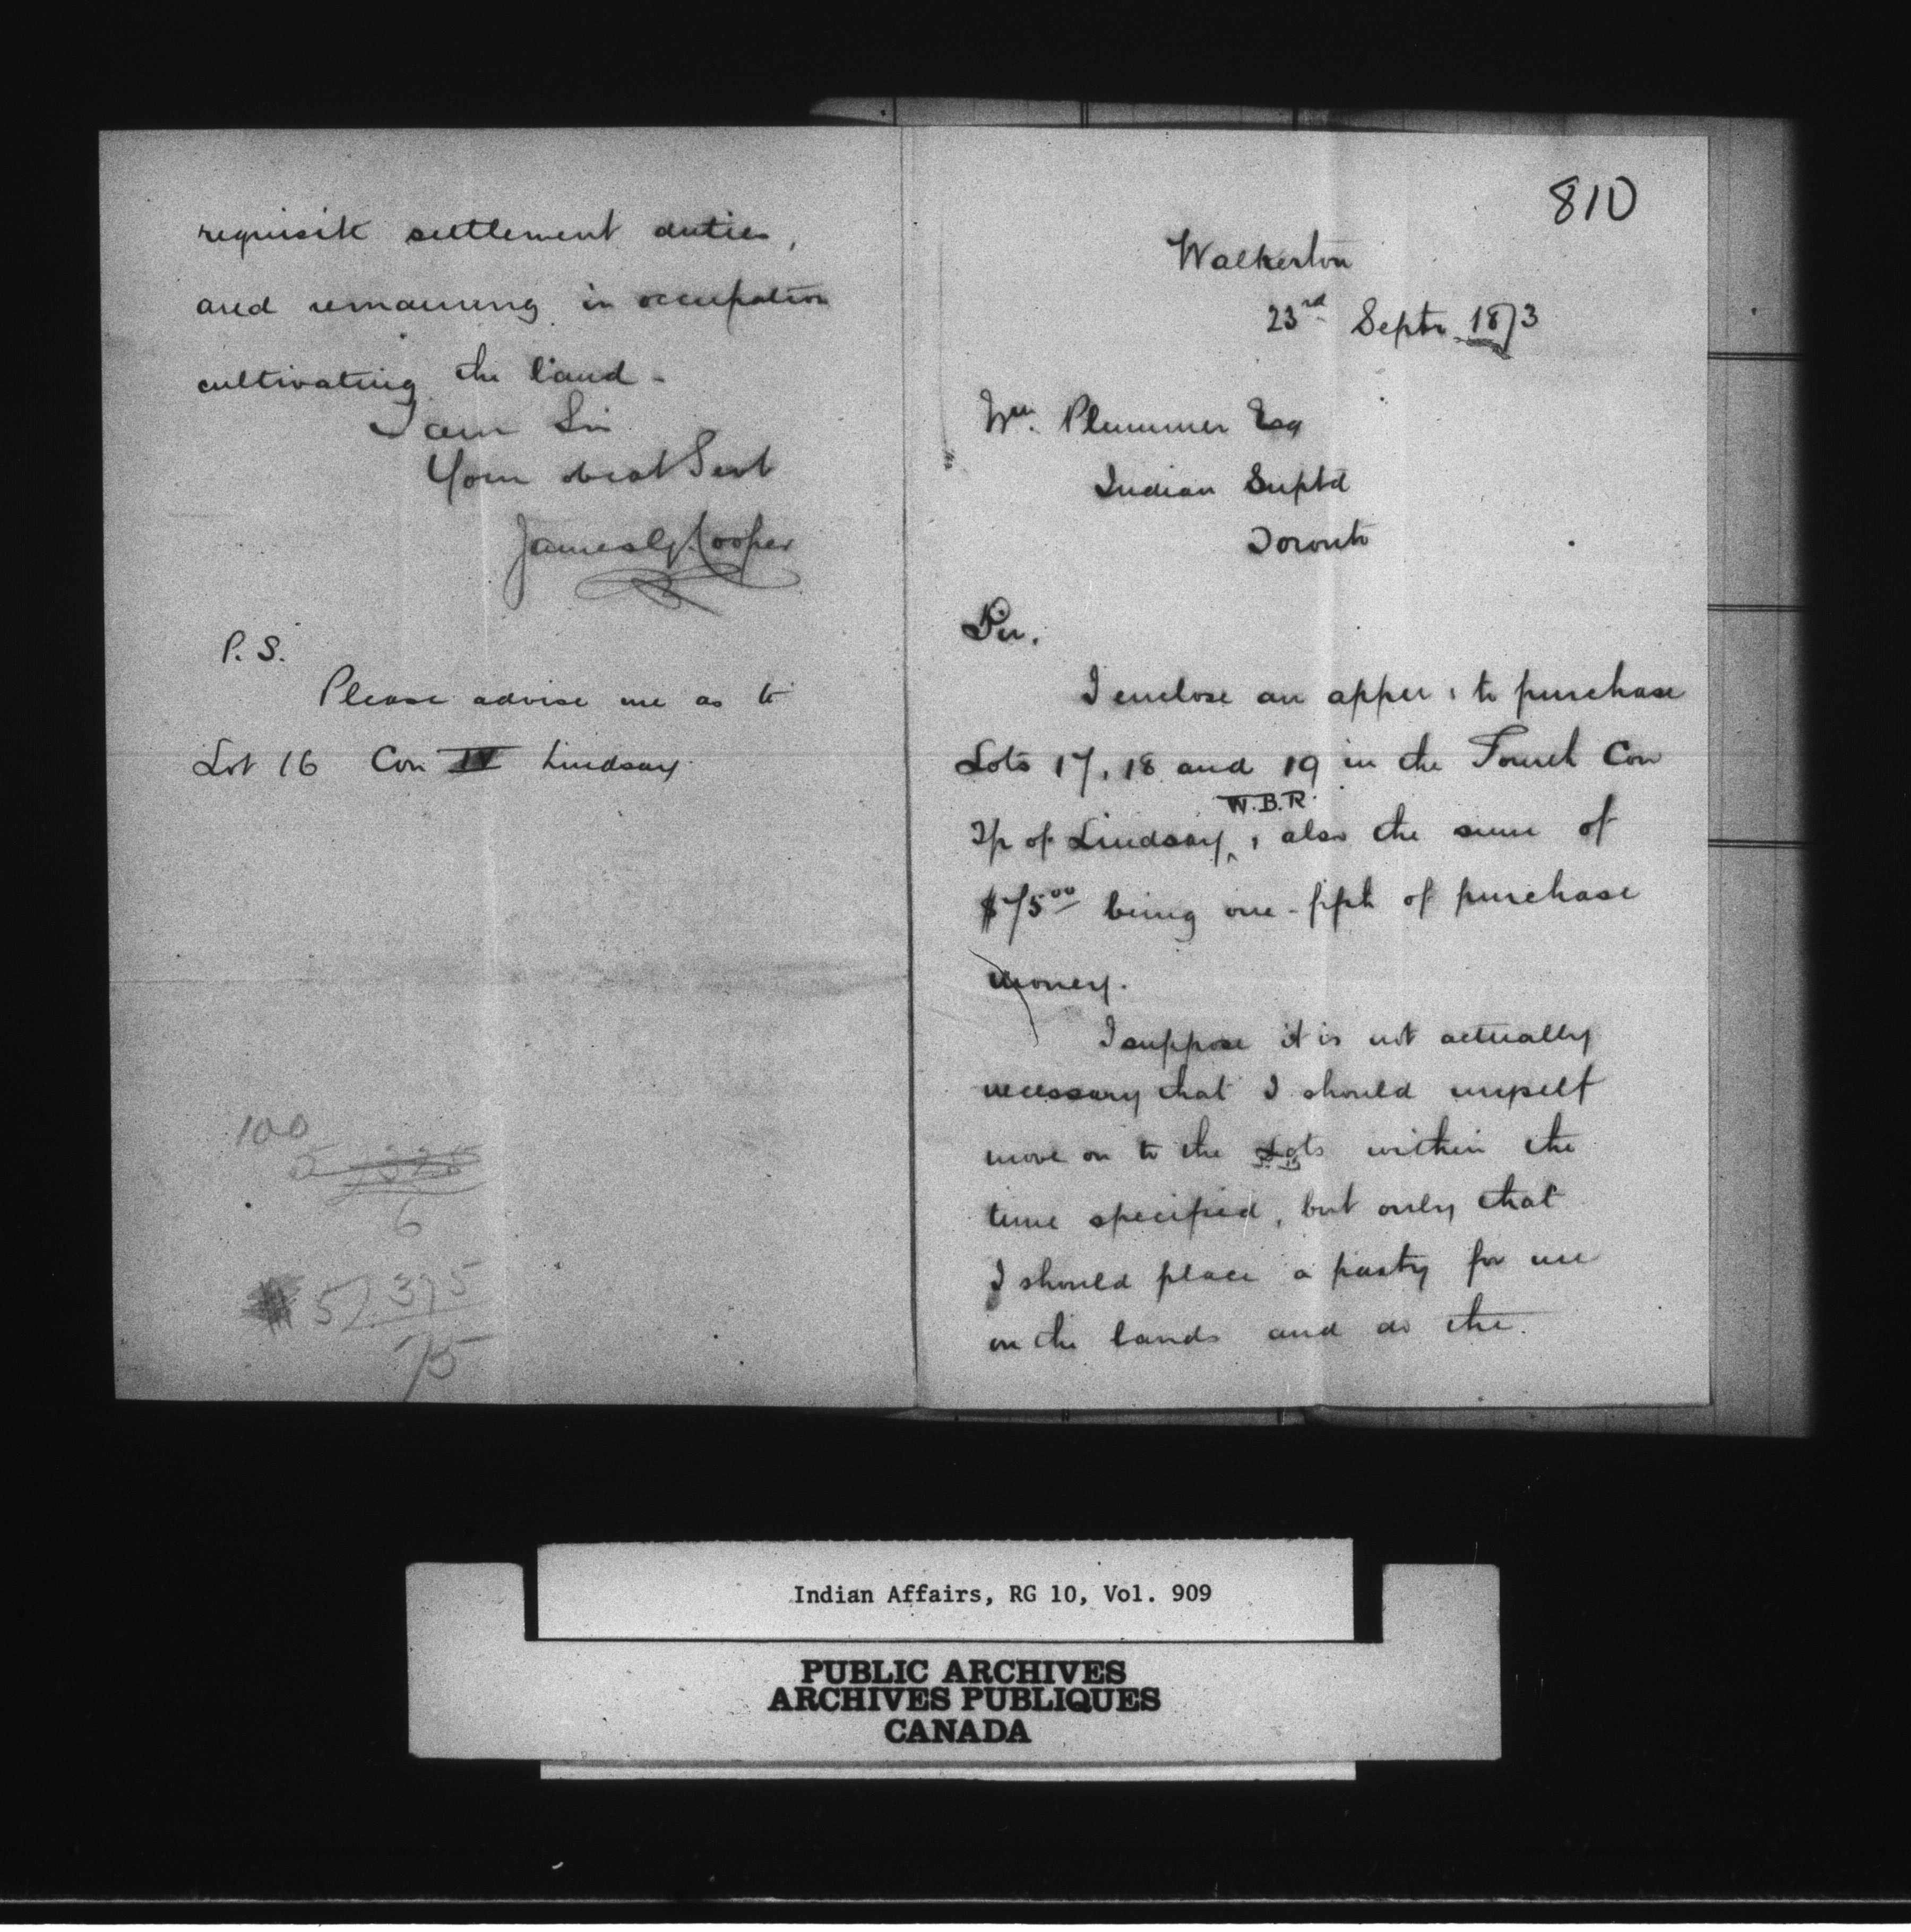 810
Walkerton
23rd Septr 1873
Wm. Plummer Esq
Indian Suptd
Toronto
Sir,
I enclose an appen: to purchase
Lots 17, 18 and 19 in the Fourth Con
W.B.R.
Tp of Lindsay, also the sum of
$75.00 being one-fifth of purchase
money.
I suppose it is not actually
necessary that I should myself
move on to the Lots within the
time specified, but only that
I should place a party for me
on the lands and do the
requisite settlement duties,
and remaining in occupation
cultivating the land -
I am Sir
Your obedt Servt
James G. Cooper
P. S.
Please advise me as to
Lot 16 Con IV Lindsay
100
6
5) 375
75
Indian Affairs, RG 10, Vol. 909
PUBLIC ARCHIVES
ARCHIVES PUBLIQUES
CANADA